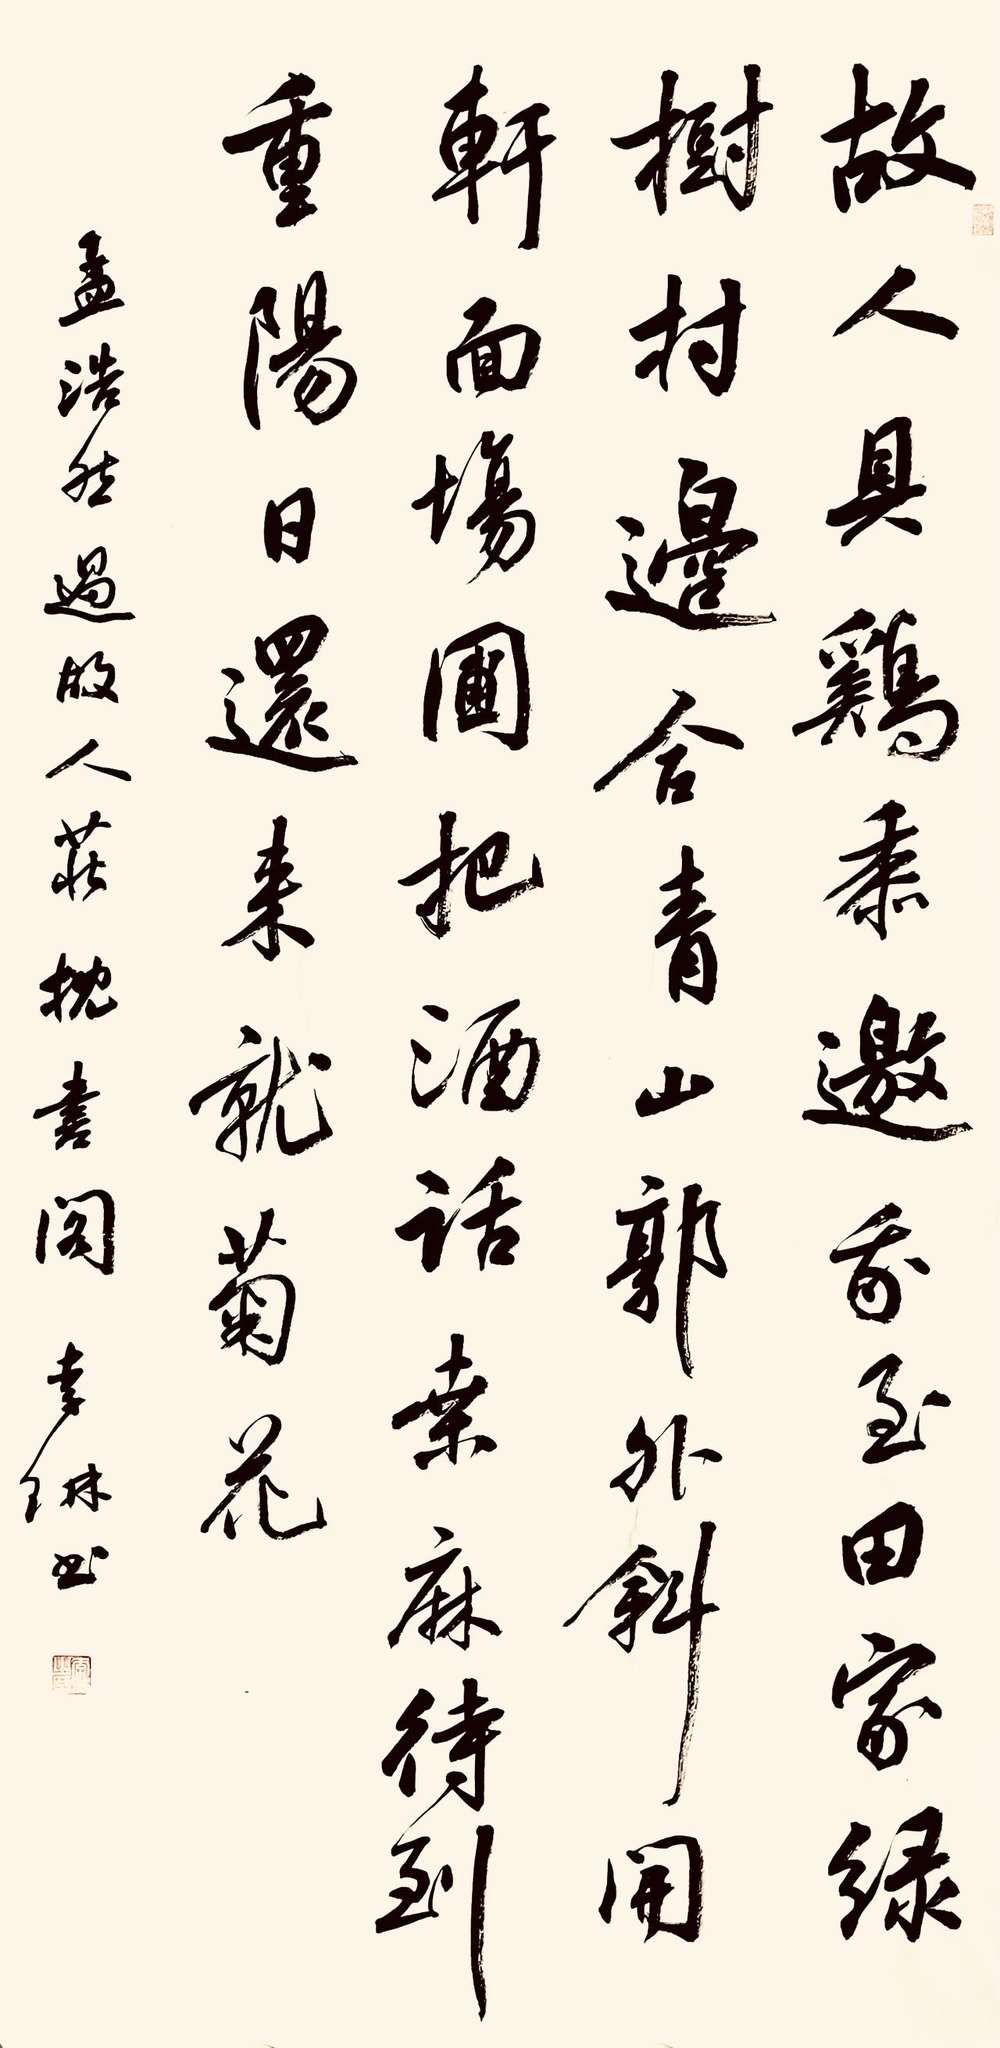 故人具鷄黍邀我至田家緑
樹村邊合青山郭外斜開
軒面場圃把酒話桒麻待到
重陽日還来就菊花
孟浩然過故人莊 枕書閣 李琳书